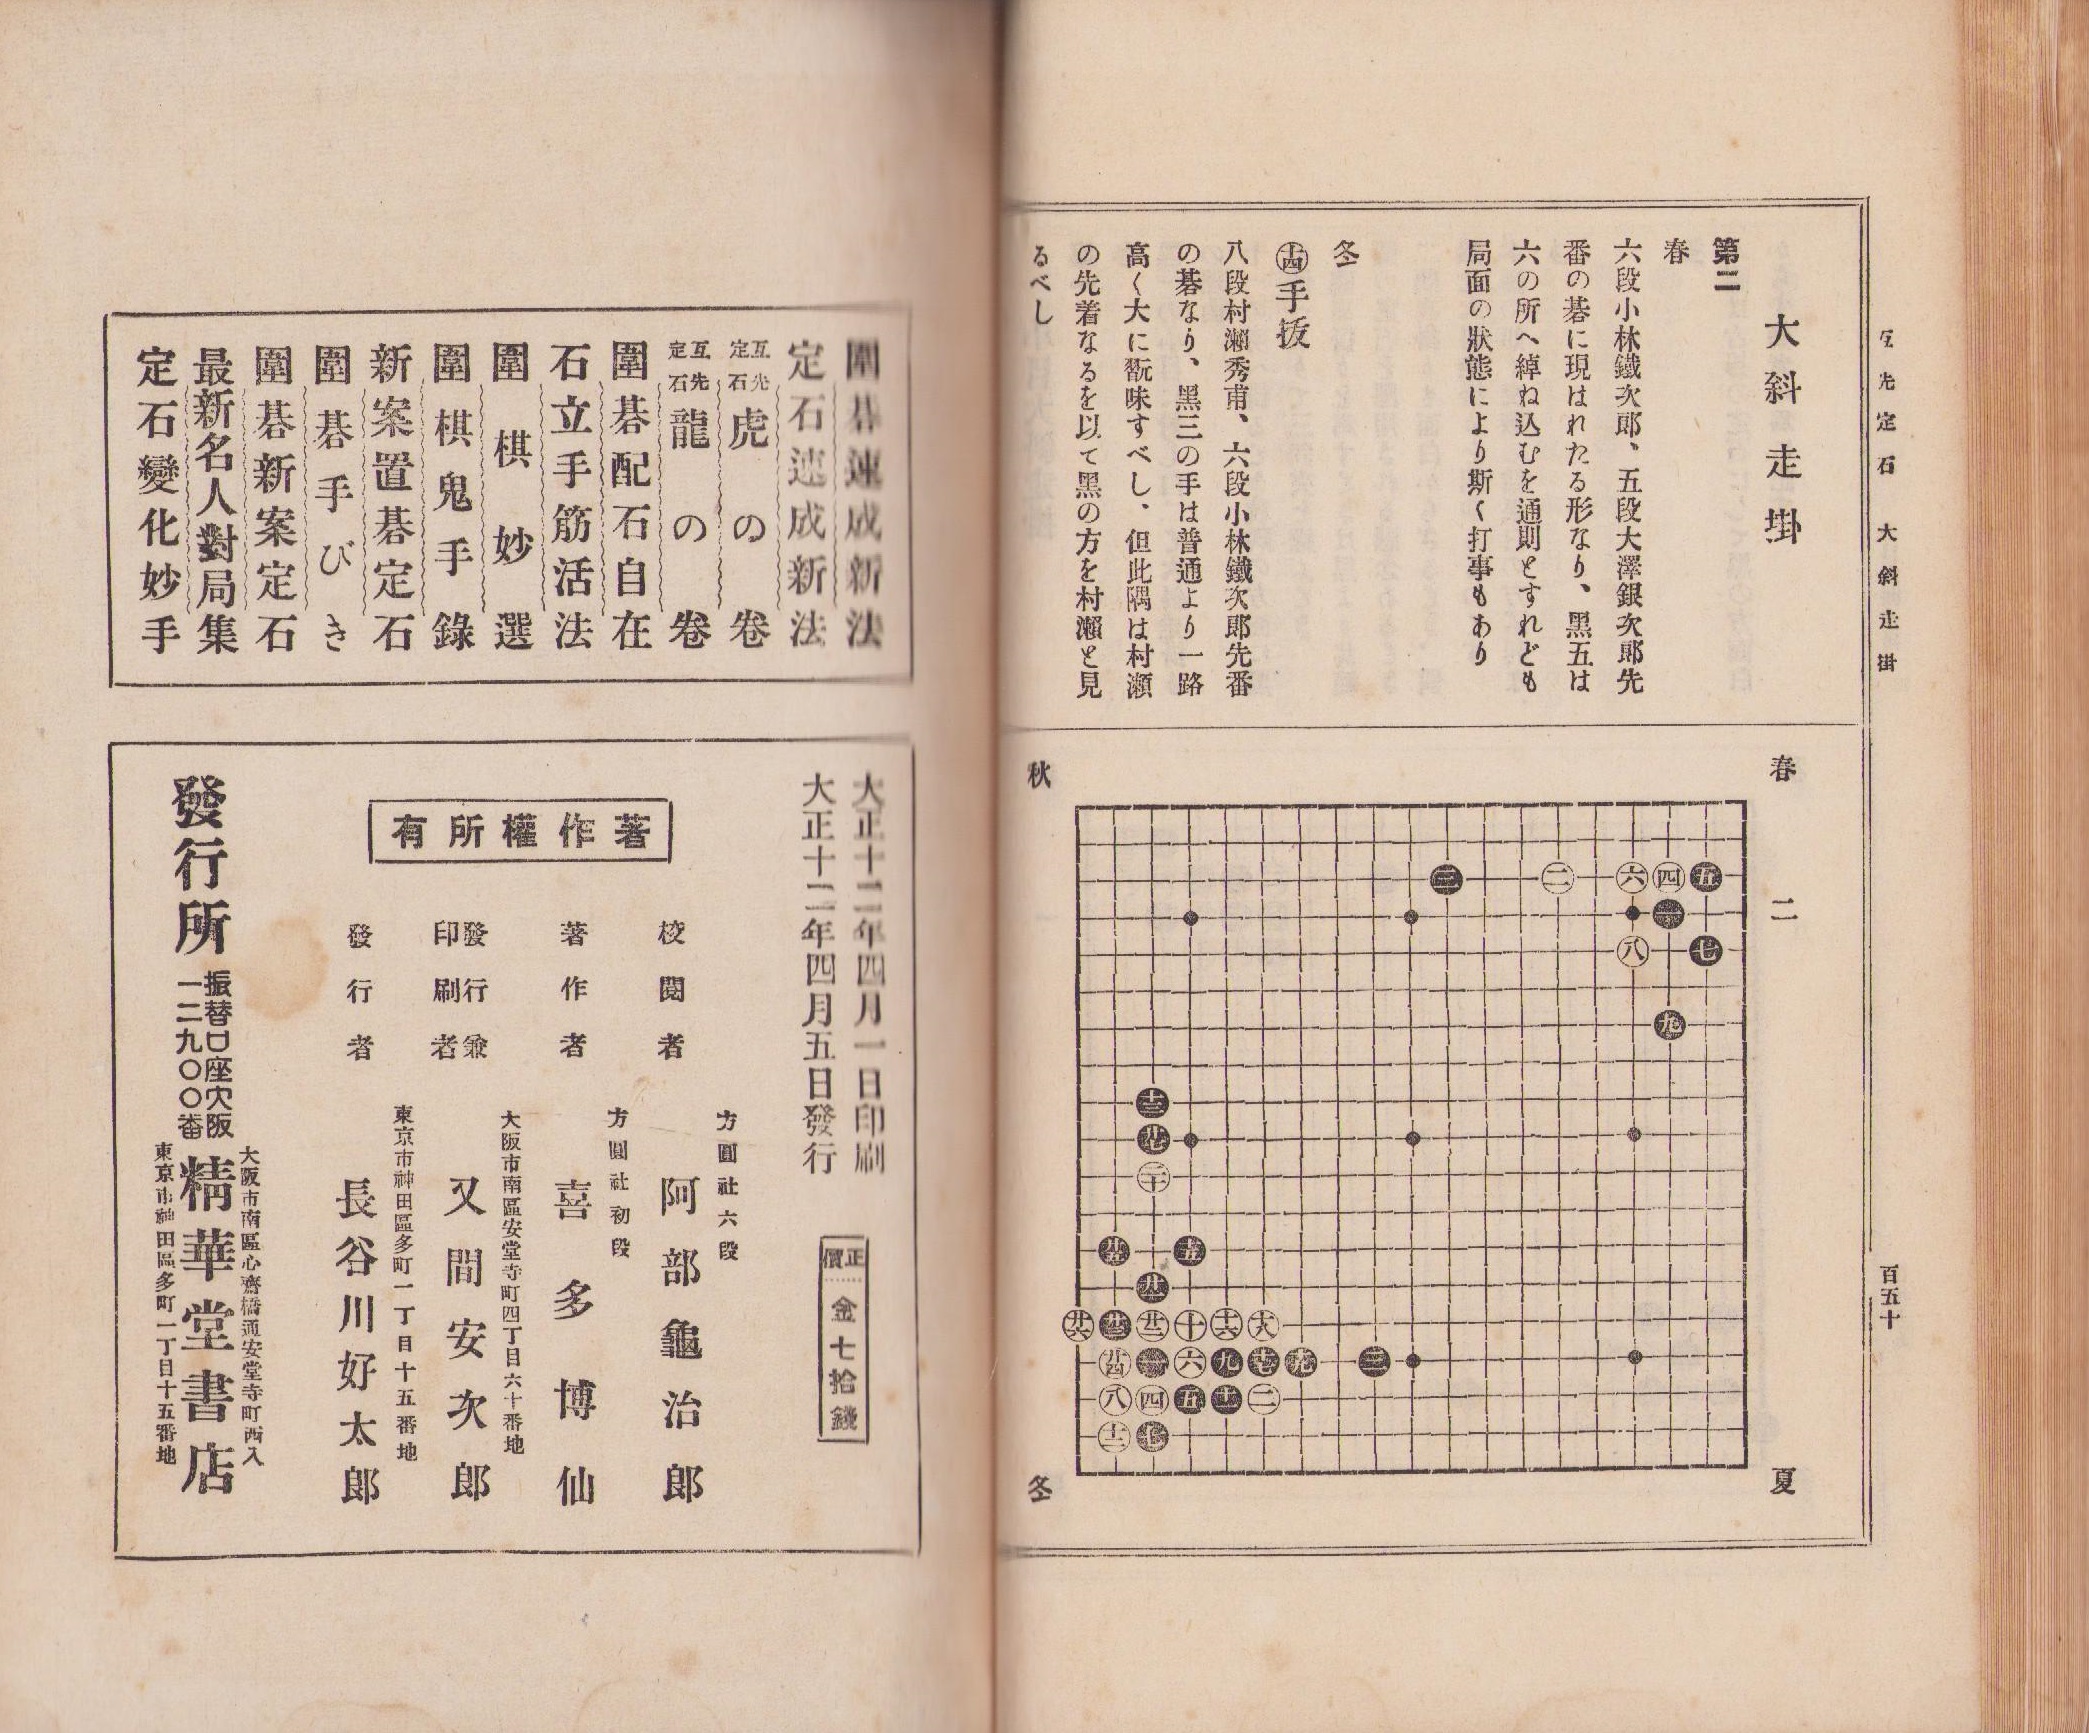 互先定石　大斜走掛
百五十
大斜走掛
第二
春
六段小林鐵次郎、五段大澤銀次郎先
番の碁に現はれたる形なり、黒五は
六の所へ綽ね込むを通則とすれども
局面の狀態により斯く打事もあり
冬
十四手抜
八段村瀬秀甫、六段小林鐵次郎先番
の碁なり、黒三の手は普通より一路
高く大に翫味すべし、但此隅は村瀬
の先着なるを以て黒の方を村瀬と見
るべし
春
二
夏
秋
冬
三 二 六 四 五
一
八 七
九
十三
廿九
二十
廿五 十五
廿六 廿三 廿二 十 十六 十八
廿四 一 六 九 十七 十九 三
八 四 五 十一 二
十二 七
圍碁速成新法
定石速成新法
互先定石 虎の卷
互先定石 龍の卷
圍碁配石自在
石立手筋活法
圍棋妙選
圍棋鬼手錄
新案置碁定石
圍碁手びき
圍碁新案定石
最新名人對局集
定石變化妙手
大正十二年四月一日印刷
大正十二年四月五日發行
正價 金七拾錢
著作權所有
方圓社六段
校閲者 阿部龜治郎
方圓社初段
著作者 喜多博仙
大阪市南區安堂寺町四丁目六十番地
發行兼印刷者 又間安次郎
東京市神田區多町一丁目十五番地
發行者 長谷川好太郎
大阪市南區心齋橋通安堂寺町西入
發行所 振替口座大阪一二九〇〇番 精華堂書店
東京市神田區多町一丁目十五番地